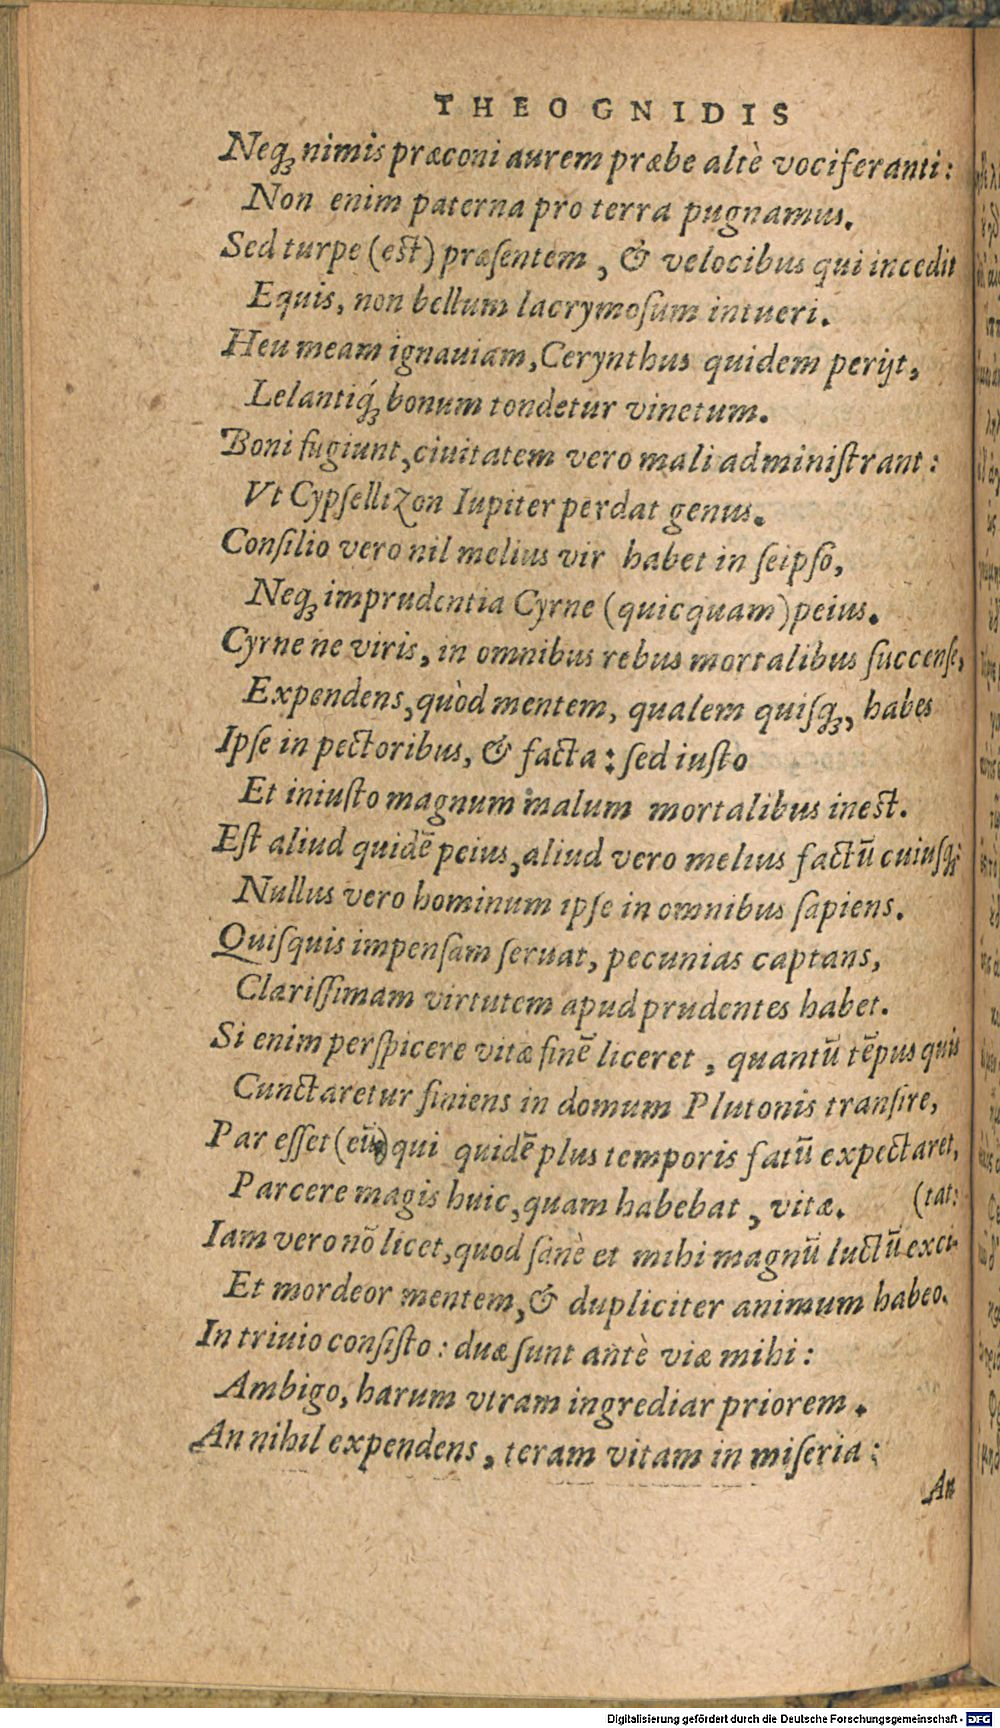 THEOGNIDIS
Neqꝫ nimis præconi aurem præbe altè vociferanti:
Non enim paterna pro terra pugnamus.
Sed turpe (est) præſentem, & velocibus qui incedit
Equis, non bellum lacrymoſum intueri.
Heu meam ignauiam, Cerynthus quidem perijt,
Lelantiq́ꝫ bonum tondetur vinetum.
Boni fugiunt, ciuitatem vero mali adminiſtrant:
Vt Cypſellizon Iupiter perdat genus.
Conſilio vero nil melius vir habet in ſeipſo,
Neqꝫ imprudentia Cyrne (quicquam) peius.
Cyrne ne viris, in omnibus rebus mortalibus ſuccenſe,
Expendens, quòd mentem, qualem quiſqꝫ, habes
Ipſe in pectoribus, & facta: ſed iuſto
Et iniuſto magnum malum mortalibus inest.
Eſt aliud quidē peius, aliud vero melius factū cuiuſqꝫ:
Nullus vero hominum ipſe in omnibus ſapiens.
Quiſquis impenſam ſeruat, pecunias captans,
Clariſſimam virtutem apud prudentes habet.
Si enim perſpicere vitæ finē liceret, quantū tēpus quis
Cunctaretur finiens in domum Plutonis tranſire,
Par eſſet (eū) qui quidē plus temporis fatū expectaret,
Parcere magis huic, quam habebat, vitæ. (tat:
Iam vero nō licet, quod ſanè et mihi magnū luctū exci-
Et mordeor mentem, & dupliciter animum habeo.
In triuio conſiſto: duæ ſunt antè viæ mihi:
Ambigo, harum vtram ingrediar priorem.
An nihil expendens, teram vitam in miſeria:
An